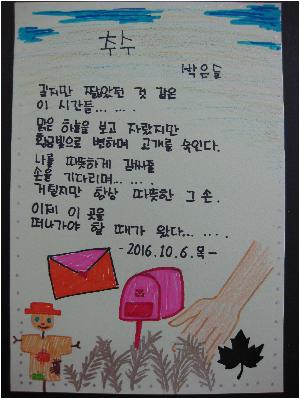 추수
박은솔
길지만 짧았던 것 같은
이 시간들... ....
맑은 하늘을 보고 자랐지만
황금빛으로 변하며 고개를 숙인다.
나를 따뜻하게 감싸줄
손을 기다리며... ....
거칠지만 항상 따뜻한 그 손.
이제 이 곳을
떠나가야 할 때가 왔다... ....
-2016.10.6.목-